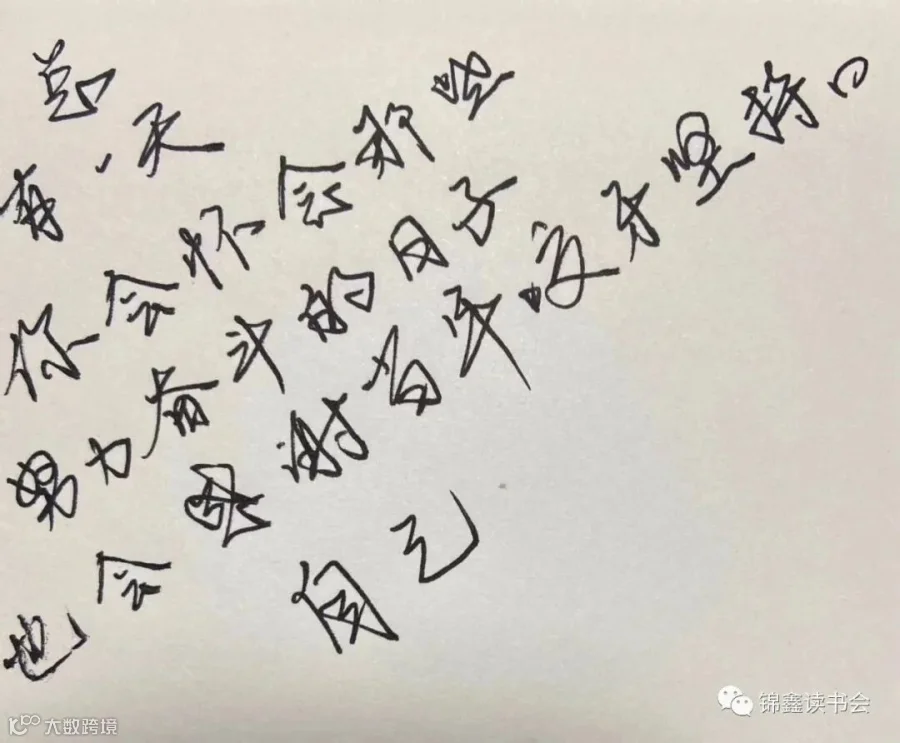 总
有一天
你会怀念那些
努力奋斗的日子
也会感谢当年咬牙坚持的
自己
锦鑫读书会
大数跨境